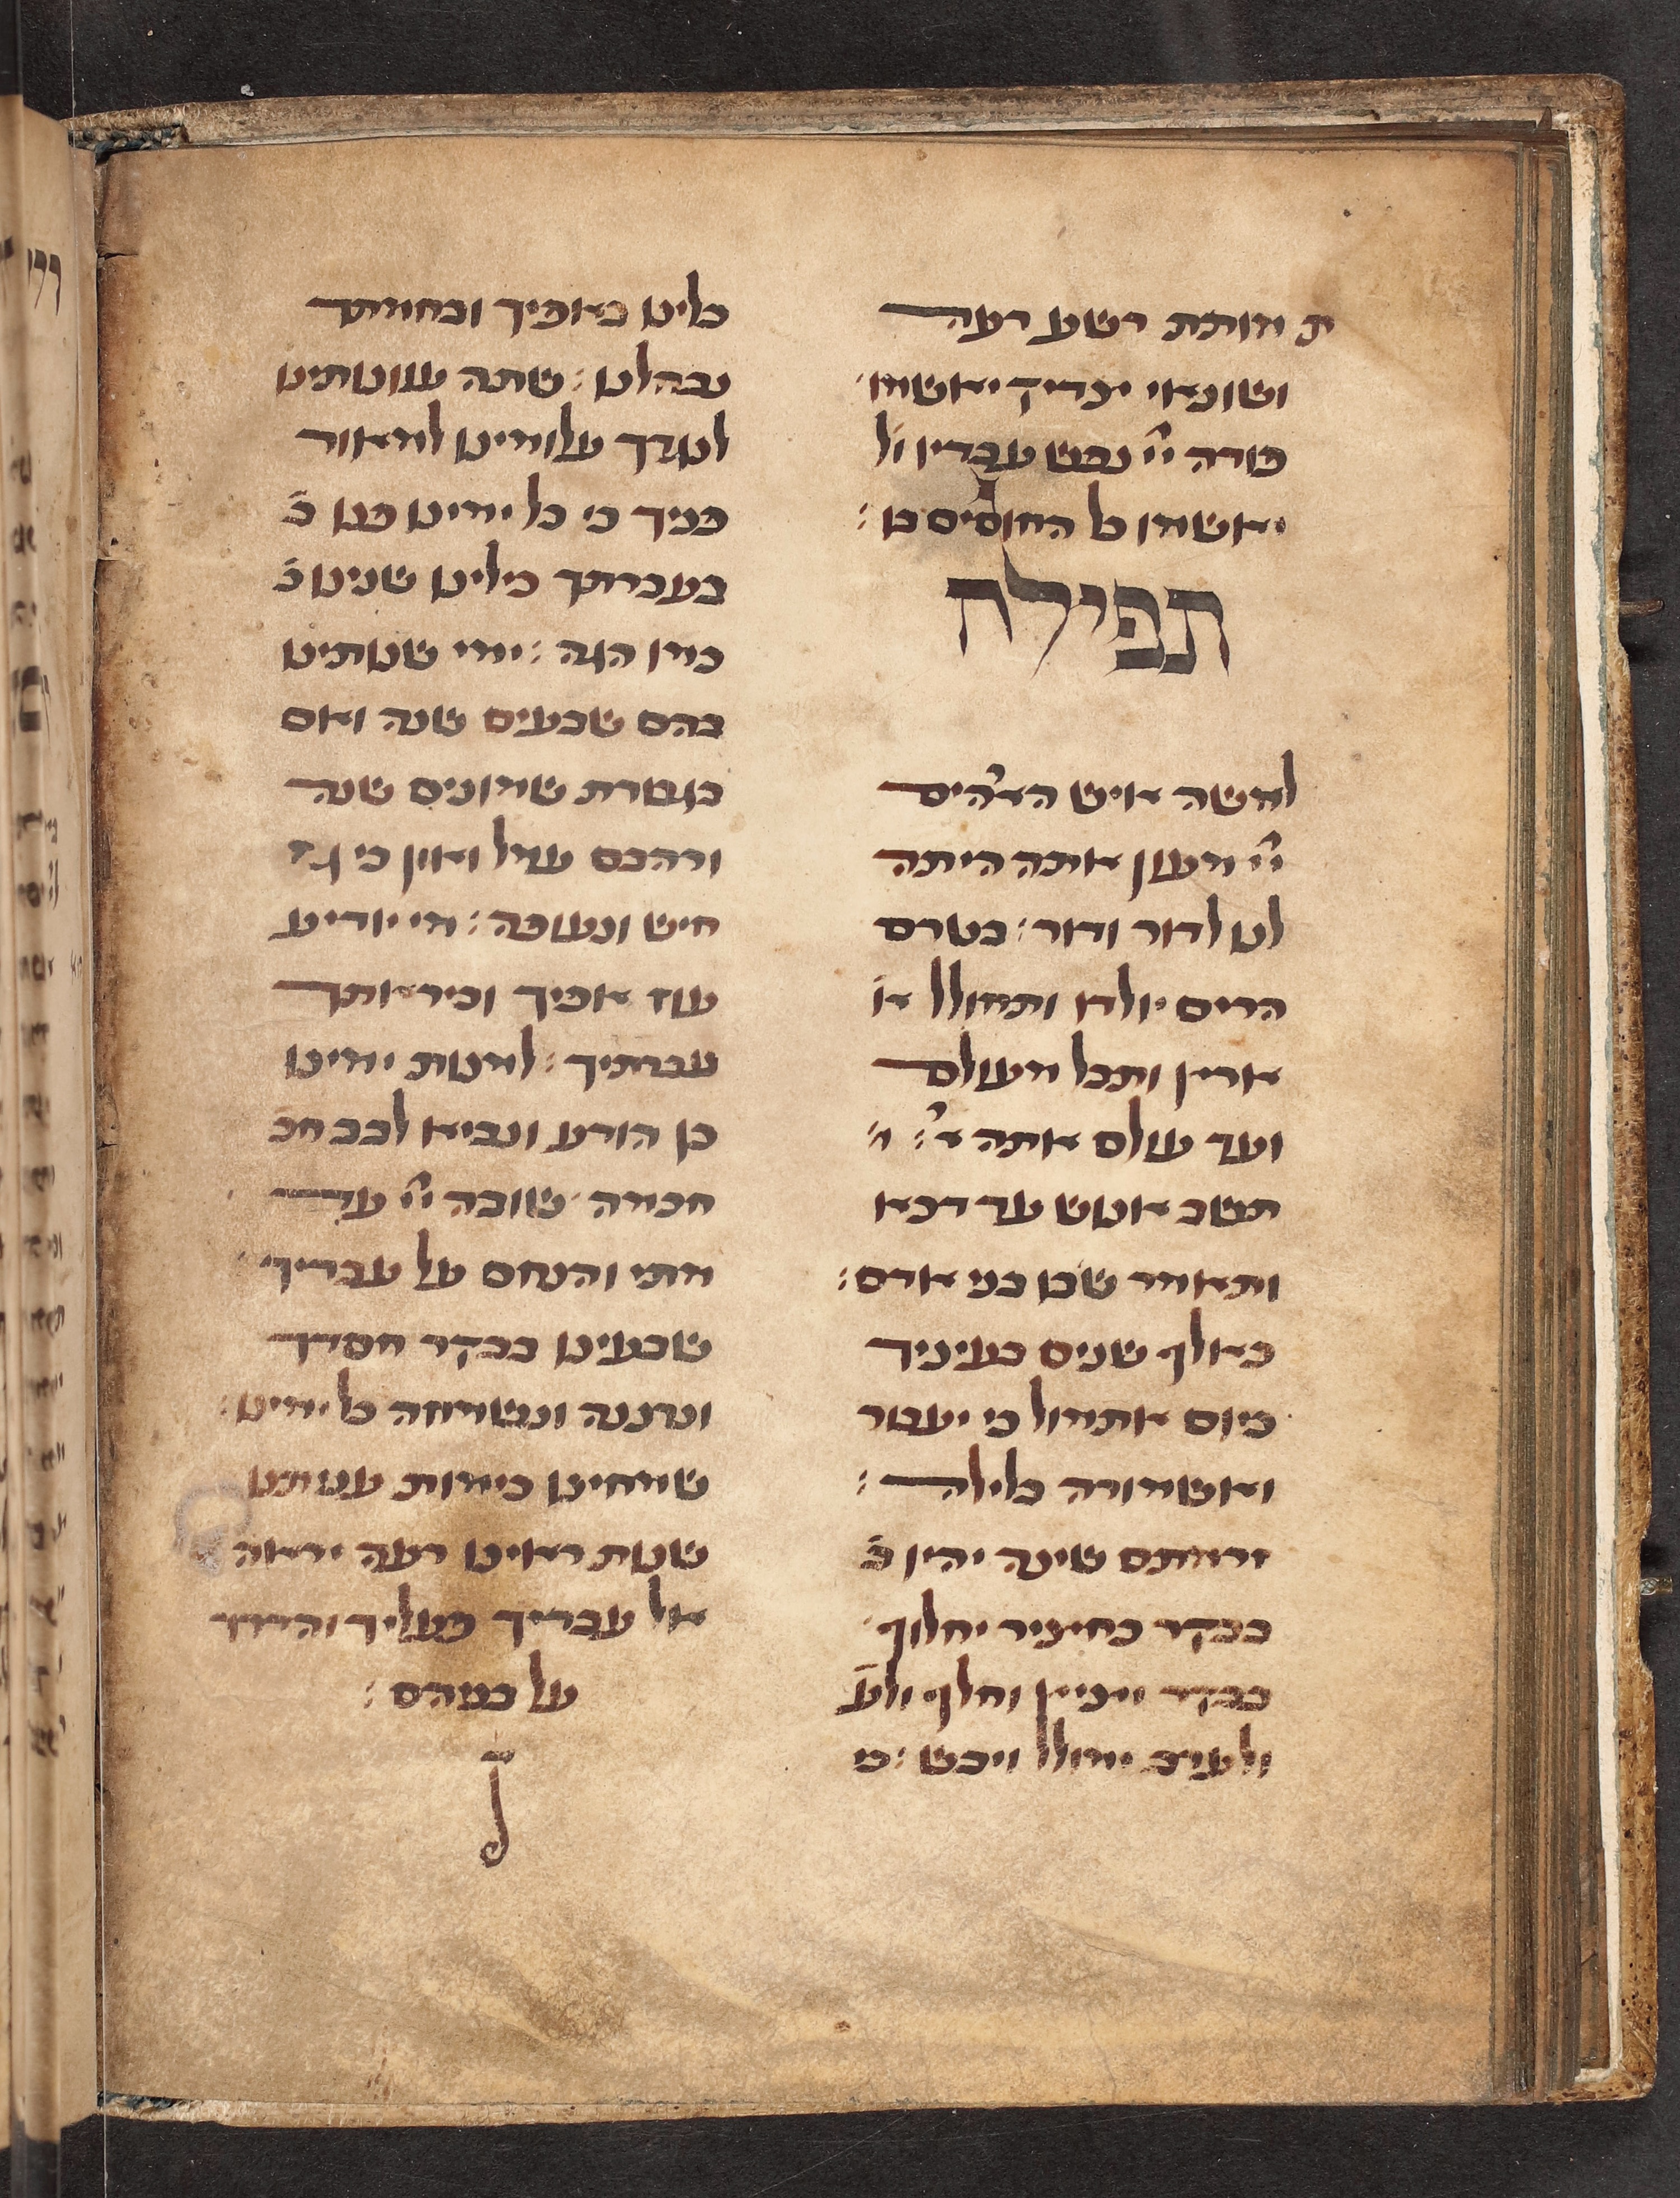 ת מותת רשע רעה
ושונאי יצדיק יאשמו
פודה יי נפש עבדיו ול
יאשמו כל החוסים בו :
תפילה
למשה איש האלהים
יי מעון אתה היתה
לנו לדור ודור : בטרם
הרים יולדו ותחולל א
ארץ ותבל מעולם
ועד עולם אתה
תשב אנוש עד דכא
ותאמר שבו בני אדם :
כאלף שנים בעיניך
כיום אתמול כי יעבור
ואשמורה בלילה :
זרמתם שינה יהיו כ
בבקר כחיציר יחלוף
בבקר ויציץ וחלף ולע
ולערב ימולל ויבש : כי
כלינו באפיך ובחמתך
נבהלנו : שתה עונותינו
לנגדך עלומינו למאור
פניך כי כל ימינו פנו כ
בעברתך כילינו שנינו כ
כמו הגה : ימי שנותינו
בהם שבעים שנה ואם
בגבורת שמונים שנה
ורהבם עמל ואון כי גז
חיש ונעופה : מי יודיע
עוז אפיך וכיראתך
עברתיך : למנות ימינו
כן הודע ונביא לבב חכ
חכמה שובה יי עד
מתי והנחם על עבדיך
שבעינו בבקר חסדך
ונרננה ונשמחה כל ימינו :
שמחינו כימות עניתנו
שנות ראינו רעה יראה
אל עבדיך פעליך והדרך
על בניהם :